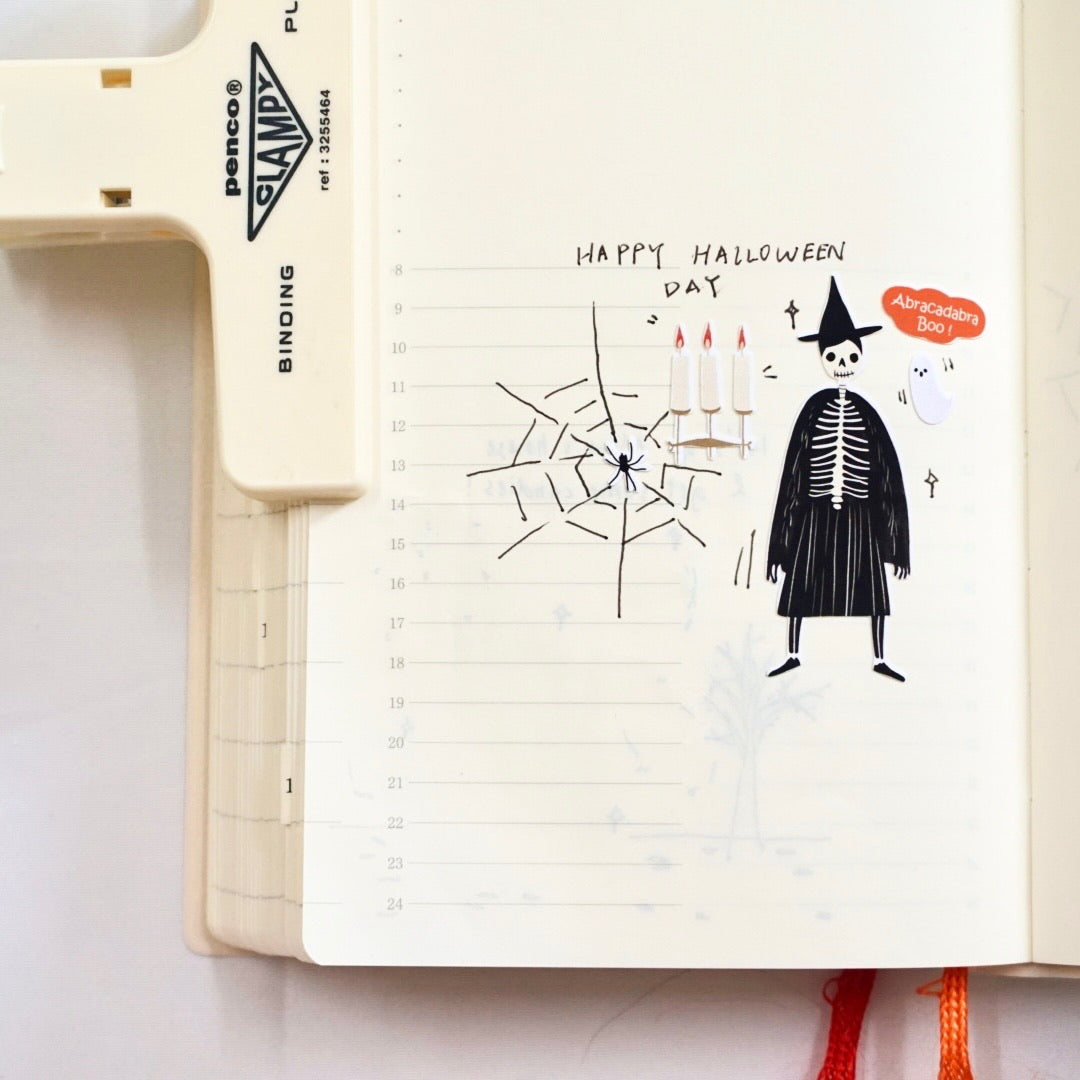 penco®
CLAMPY
ref : 3255464
BINDING
HAPPY HALLOWEEN
DAY
Abracadabra
Boo !
8
9
10
11
12
13
14
15
16
17
18
19
20
21
22
23
24
1
1